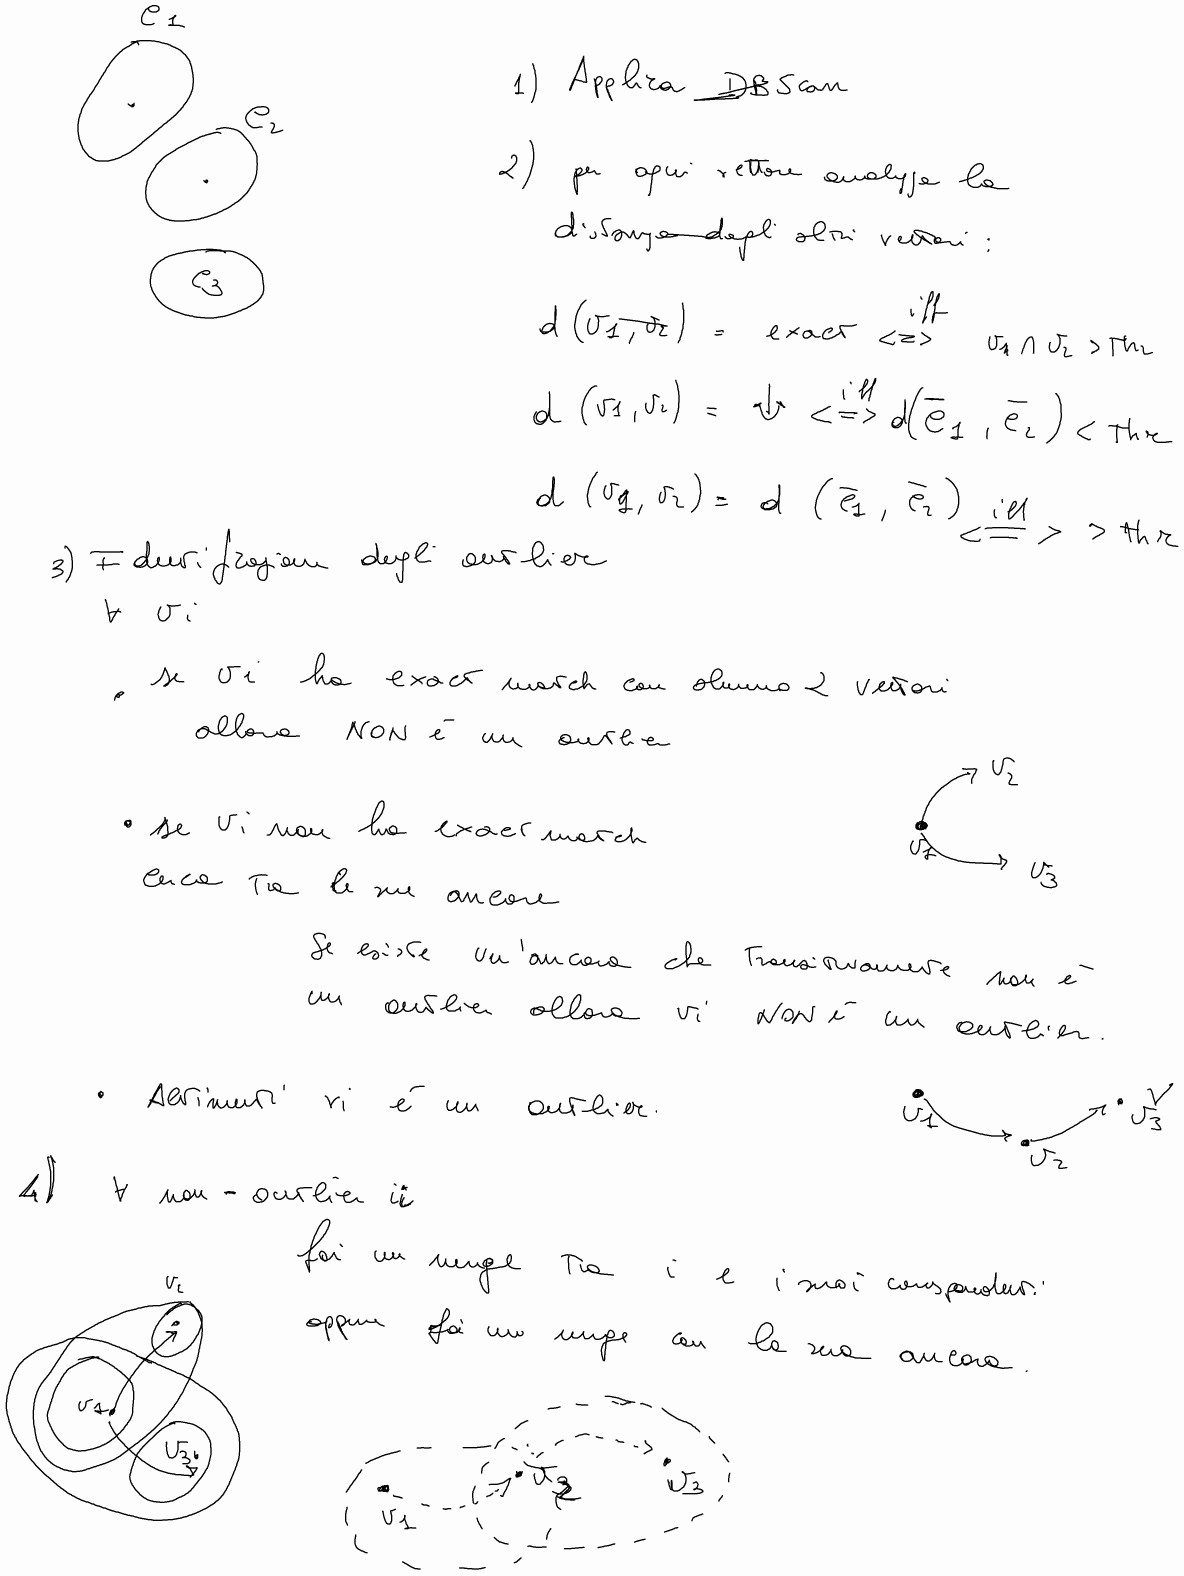 e1
e2
e3
1) Applica DBScan
2) per ogni vettore analizza la
distanza dagli altri vettori:
d (v1, v2) = exact <=> iff v1 ∩ v2 > Thr
d (v1, v2) = ↓ <=> iff d(e̅1, e̅2) < Thr
d (v1, v2) = d (e̅1, e̅2) <=> iff > thr
3) Identificazione degli outlier
∀ vi
• se vi ha exact match con almeno 2 vettori
allora NON è un outlier
• se vi non ha exact match
cerca tra le sue ancore
Se esiste un'ancora che transitivamente non è
un outlier allora vi NON è un outlier.
v1
v2
v3
• Altrimenti vi è un outlier.
v1
v2
v3
4) ∀ non-outlier i
fai un merge tra i e i suoi corrispondenti
oppure fai un merge con la sua ancora.
v2
v1
v3
v1
v2
v3